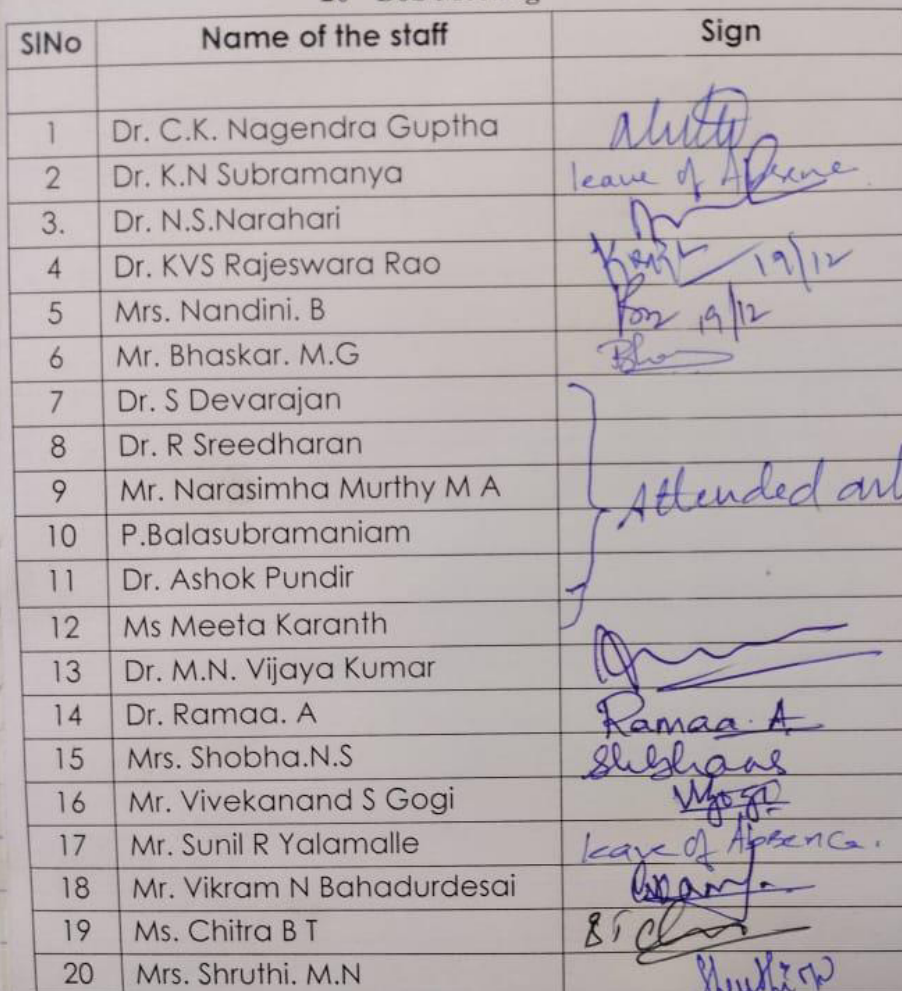 SlNo Name of the staff Sign
1 Dr. C.K. Nagendra Guptha
2 Dr. K.N Subramanya leave of Absence
3. Dr. N.S.Narahari
4 Dr. KVS Rajeswara Rao 19/12
5 Mrs. Nandini. B 19/12
6 Mr. Bhaskar. M.G
7 Dr. S Devarajan
8 Dr. R Sreedharan
9 Mr. Narasimha Murthy M A Attended
10 P.Balasubramaniam
11 Dr. Ashok Pundir
12 Ms Meeta Karanth
13 Dr. M.N. Vijaya Kumar
14 Dr. Ramaa. A Ramaa. A
15 Mrs. Shobha.N.S
16 Mr. Vivekanand S Gogi
17 Mr. Sunil R Yalamalle leave of Absence.
18 Mr. Vikram N Bahadurdesai
19 Ms. Chitra B T
20 Mrs. Shruthi. M.N